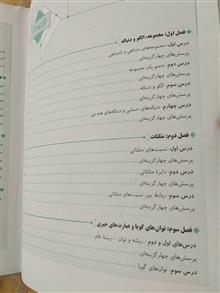 فصل اول: مجموعه، الگو و دنباله
درس اول- مجموعه‌های متناهی و نامتناهی
پرسش‌های چهارگزینه‌ای
درس دوم- متمم یک مجموعه
پرسش‌های چهارگزینه‌ای
درس سوم- الگو و دنباله
پرسش‌های چهارگزینه‌ای
درس چهارم- دنباله‌های حسابی و دنباله‌های هندسی
پرسش‌های چهارگزینه‌ای
فصل دوم: مثلثات
درس اول- نسبت‌های مثلثاتی
پرسش‌های چهارگزینه‌ای
درس دوم- دایرهٔ مثلثاتی
پرسش‌های چهارگزینه‌ای
درس سوم- روابط بین نسبت‌های مثلثاتی
پرسش‌های چهارگزینه‌ای
فصل سوم: توان‌های گویا و عبارت‌های جبری
درس‌های اول و دوم- ریشه و توان - ریشهٔ nام
پرسش‌های چهارگزینه‌ای
درس سوم- توان‌های گویا